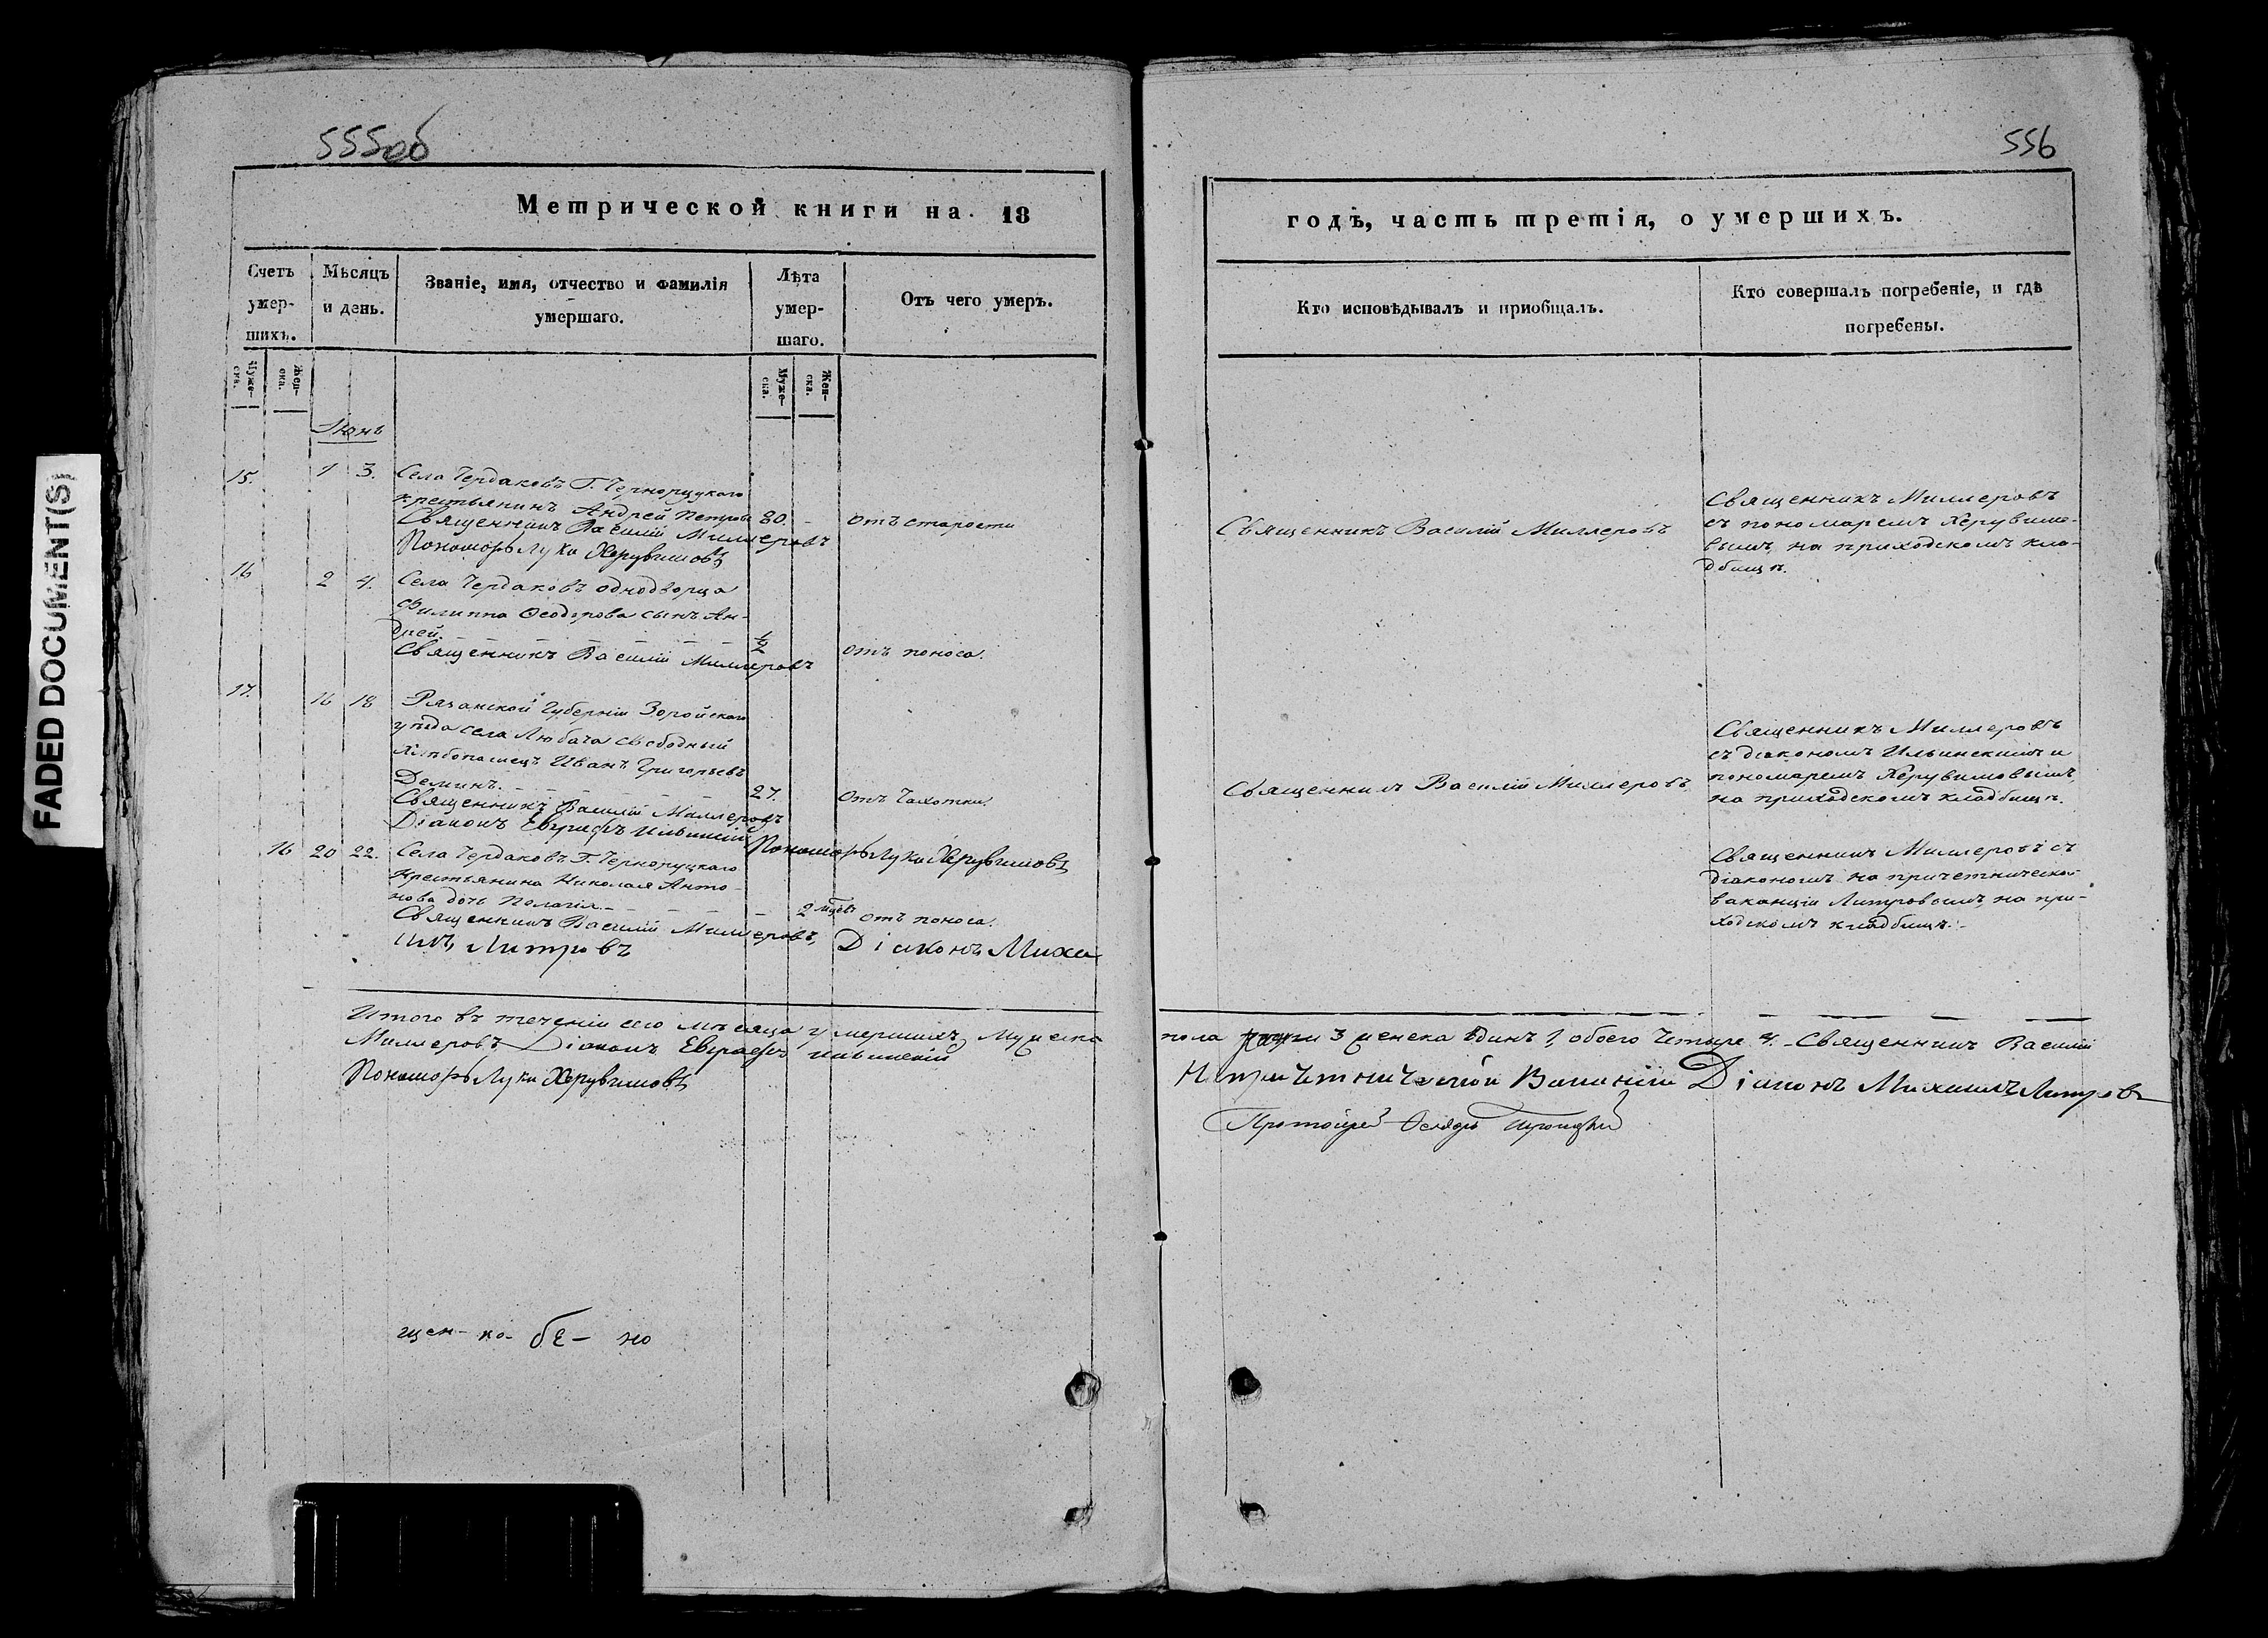 555об
556
Метрической книги на 18
годъ, часть третія, о умершихъ.
Счетъ умер-
шихъ.
Мѣсяцъ
и день.
Званіе, имя, отчество и фамилія
умершаго.
Лѣта
умер-
шаго.
Отъ чего умеръ.
Кто исповѣдывалъ и пріобщалъ.
Кто совершалъ погребеніе, и гдѣ
погребены.
Муже-
ска.
Жен-
ска.
Муже-
ска.
Жен-
ска.
Іюнь
15. 1 3. Села Чердаковъ Г. Черноруцкаго
крестьянинъ Андрей Петровъ 80. - отъ старости
Священникъ Василій Миллеровъ
Пономарь Лука Херувимовъ
Священникъ Василій Миллеровъ
Священникъ Миллеровъ
съ пономаремъ Херувимо-
вымъ, на приходскомъ кла-
дбищѣ.
16 2 4. Села Чердаковъ однодворца
Филиппа Ѳеодорова сынъ Ан-
дрей. ½ отъ поноса.
Священникъ Василій Миллеровъ
17. 16 18 Рязанской Губерніи Зарайскаго
уѣзда села Любача свободный
хлѣбопашецъ Иванъ Григорьевъ
Деминъ. 27. отъ чахотки.
Священникъ Василій Миллеровъ
Діаконъ Евграфъ Ильинскій Пономарь Лука Херувимовъ
Священникъ Василій Миллеровъ
Священникъ Миллеровъ
съ діакономъ Ильинскимъ и
пономаремъ Херувимовымъ,
на приходскомъ кладбищѣ.
16 20 22. Села Чердаковъ Г. Черноруцкаго
крестьянина Николая Анто-
нова дочь Пелагія. 2 мѣсяц. отъ поноса.
Священникъ Василій Миллеровъ, Діаконъ Миха
илъ, Литровъ
Священникъ Миллеровъ съ
діакономъ на причетнической
ваканціи Литровымъ, на при-
ходскомъ кладбищѣ.
Итого въ теченіи сего мѣсяца умершихъ, мужеска пола три 3 женска одинъ 1, обоего четыре 4. Священникъ Василій
Миллеровъ Діаконъ Евграфъ Ильинскій На причетнической Ваканціи Діаконъ Михаилъ Литровъ
Пономарь Лука Херувимовъ Протоіерей Троицкій
щен- но- бе- но
FADED DOCUMENT(S)